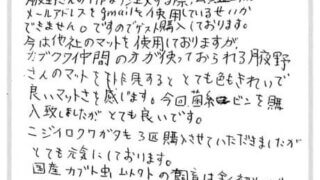 メールアドレスをgmailを使用しているせいか
できません。ですのでゲスト購入しております。
今は他社のマットを使用しておりますが、
カブクワ仲間の方が使っておられる月夜野
さんのマットを拝見するととても色もきれいで
良いマットさを感じます。今回菌糸ビンを購
入致しましたがとても良いです。
ニジイロクワガタも3匹購入させていただきましたが
とても元気にしております。
国産カブト虫